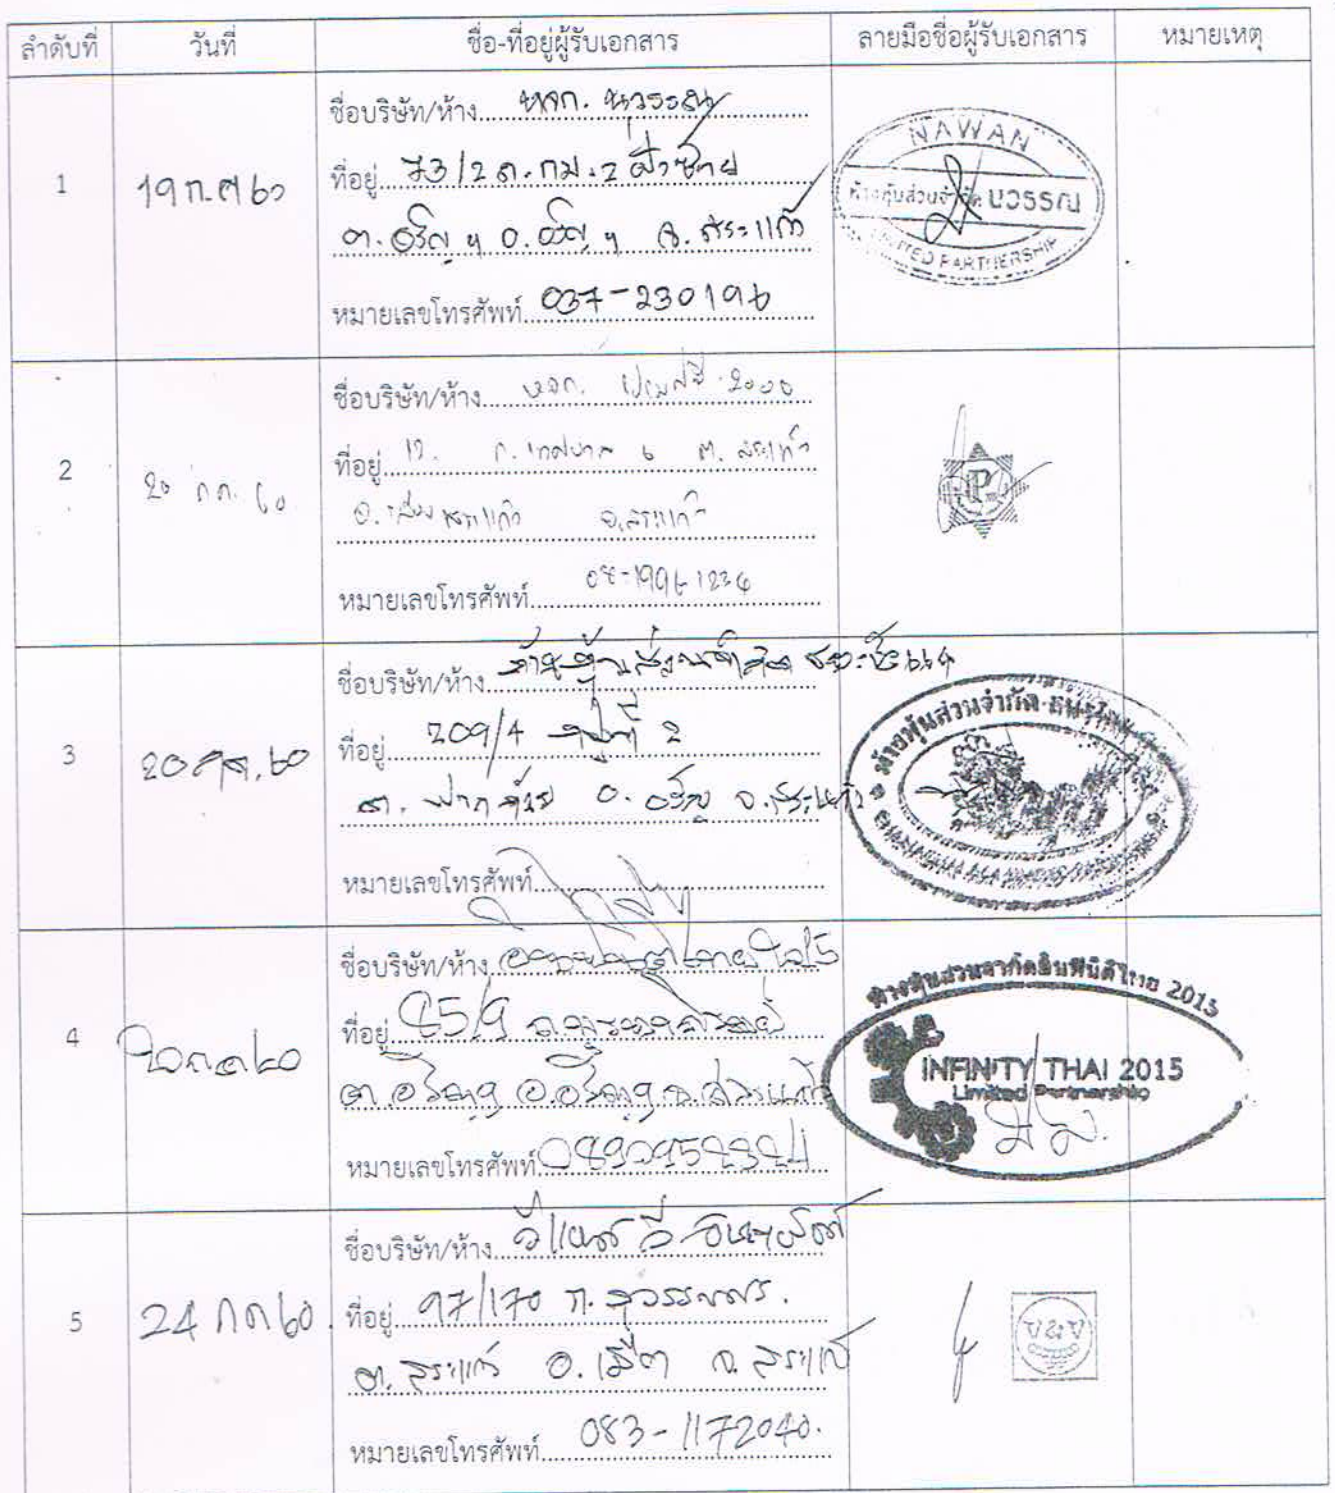 ลำดับที่ วันที่ ชื่อ-ที่อยู่ผู้รับเอกสาร ลายมือชื่อผู้รับเอกสาร หมายเหตุ
1
19 ก.ค 60
ชื่อบริษัท/ห้าง หจก. นวรรณ
ที่อยู่ 73/2 ถ. กม.2 ฝั่งซ้าย
ต. อรัญฯ อ. อรัญฯ จ. สระแก้ว
หมายเลขโทรศัพท์ 037-230196
NAWAN
ห้างหุ้นส่วนจำกัด นวรรณ
LIMITED PARTNERSHIP
2
20 ก.ค. 60
ชื่อบริษัท/ห้าง หจก. 2000
ที่อยู่ ถ. เทศบาล 6 ต. สระแก้ว
อ. เมืองสระแก้ว จ. สระแก้ว
หมายเลขโทรศัพท์
P
3
20 กค. 60
ชื่อบริษัท/ห้าง ห้างหุ้นส่วนจำกัด
ที่อยู่ 209/4 หมู่ที่ 2
ต. อ. อรัญ จ. สระแก้ว
หมายเลขโทรศัพท์
ห้างหุ้นส่วนจำกัด
4
20 กค 60
ชื่อบริษัท/ห้าง อินฟินิตี้ไทย 2015
ที่อยู่ 85/9
ต. อรัญฯ อ. อรัญฯ จ. สระแก้ว
หมายเลขโทรศัพท์
ห้างหุ้นส่วนจำกัดอินฟินิตี้ไทย 2015
INFINITY THAI 2015
Limited Partnership
5
24 กค 60
ชื่อบริษัท/ห้าง
ที่อยู่ 97/170 ถ. สุวรรณศร.
ต. สระแก้ว อ. เมือง จ. สระแก้ว
หมายเลขโทรศัพท์ 083-1172040.